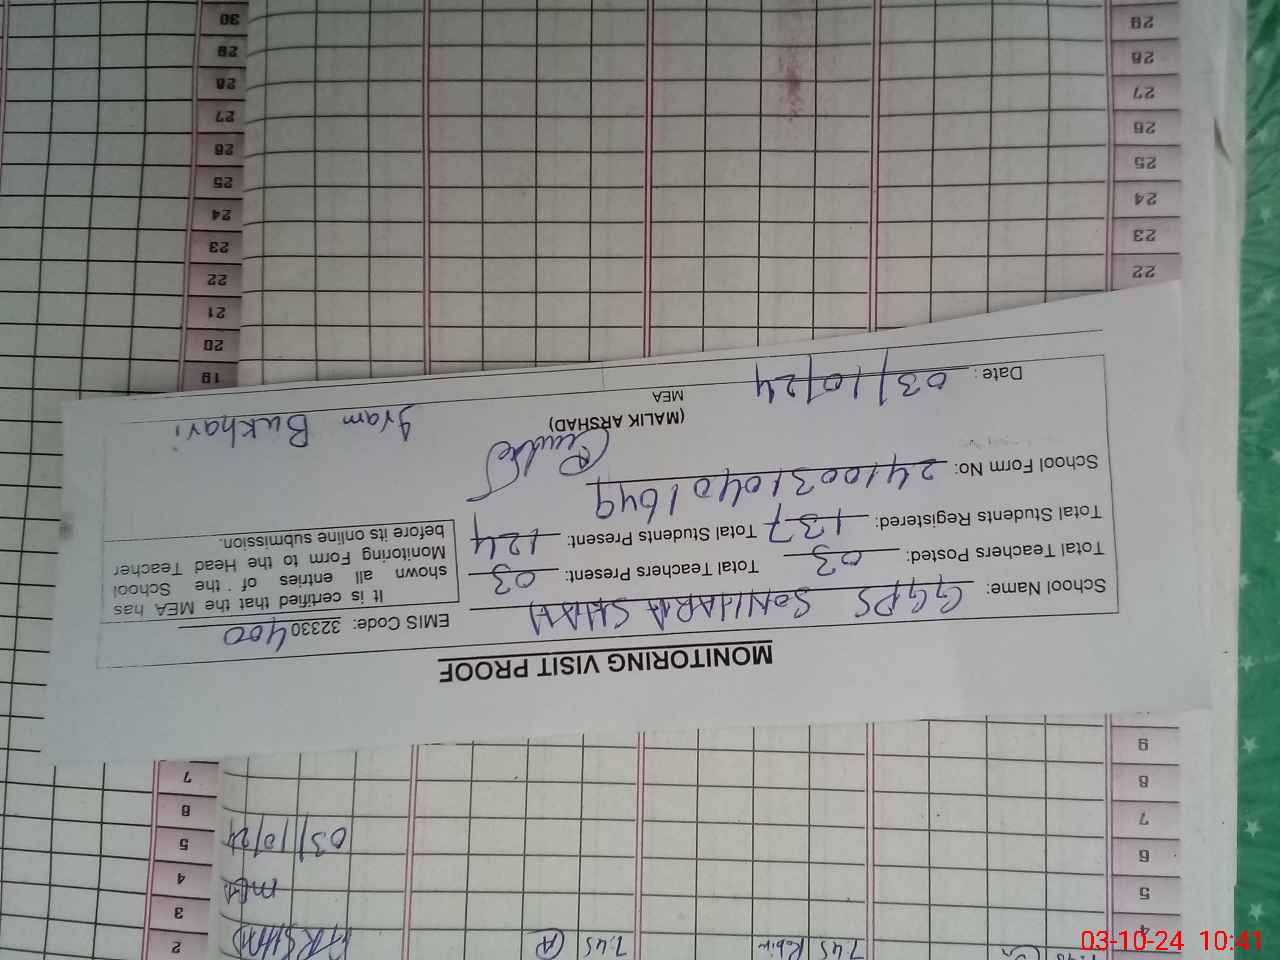 MONITORING VISIT PROOF
School Name: GGPS SONHARA SHAH EMIS Code: 32330400
Total Teachers Posted: 03 Total Teachers Present: 03
Total Students Registered: 137 Total Students Present: 124
School Form No: 24100310401649
It is certified that the MEA has
shown all entries of the School
Monitoring Form to the Head Teacher
before its online submission.
(MALIK ARSHAD)
MEA
Date: 03/10/24
Iram Bukhari
ARSHAD
MEA
03/10/24
7:45
7:45
2
3
4
5
6
7
19
20
21
22
23
24
25
26
27
28
29
30
4
5
6
7
8
9
22
23
24
25
26
27
28
29
03-10-24 10:41